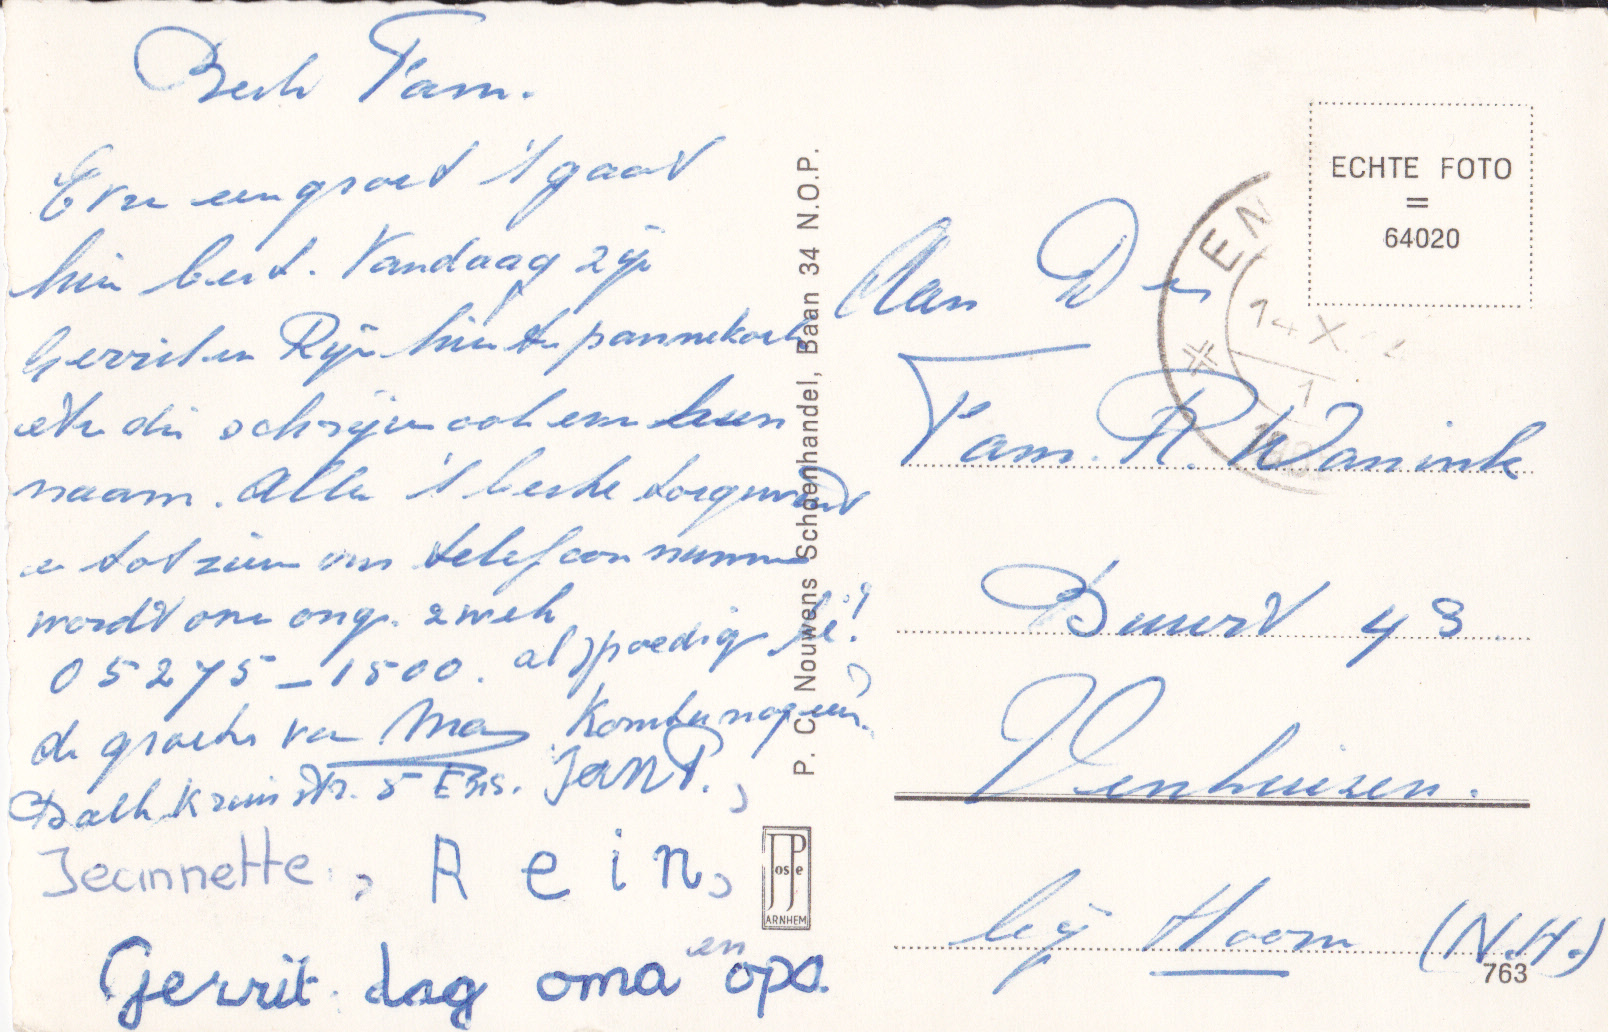 Beste Fam.
Even een groet 't gaat
hier best. Vandaag zijn
Gerrit en Rijn hier te pannekoek
eten die schrijven ook even hun
naam. Alle 't beste toegewenst
en tot ziens ons telefoon nummer
wordt over ong. 2 week
05275-1500. al spoedig hè!
de groeten van Ma Komt u nog eens.
str. 5 Ens. JANT.,
Jeannette, Rein,
Gerrit. dag oma en opa.
P. C. Nouwens Schoenhandel, Baan 34 N.O.P.
Jose
ARNHEM
ECHTE FOTO
=
64020
EN
14 X.
1
Aan De
Fam. R. Wanink
Buurt 43
Venhuizen.
bij Hoorn (N.H.)
763